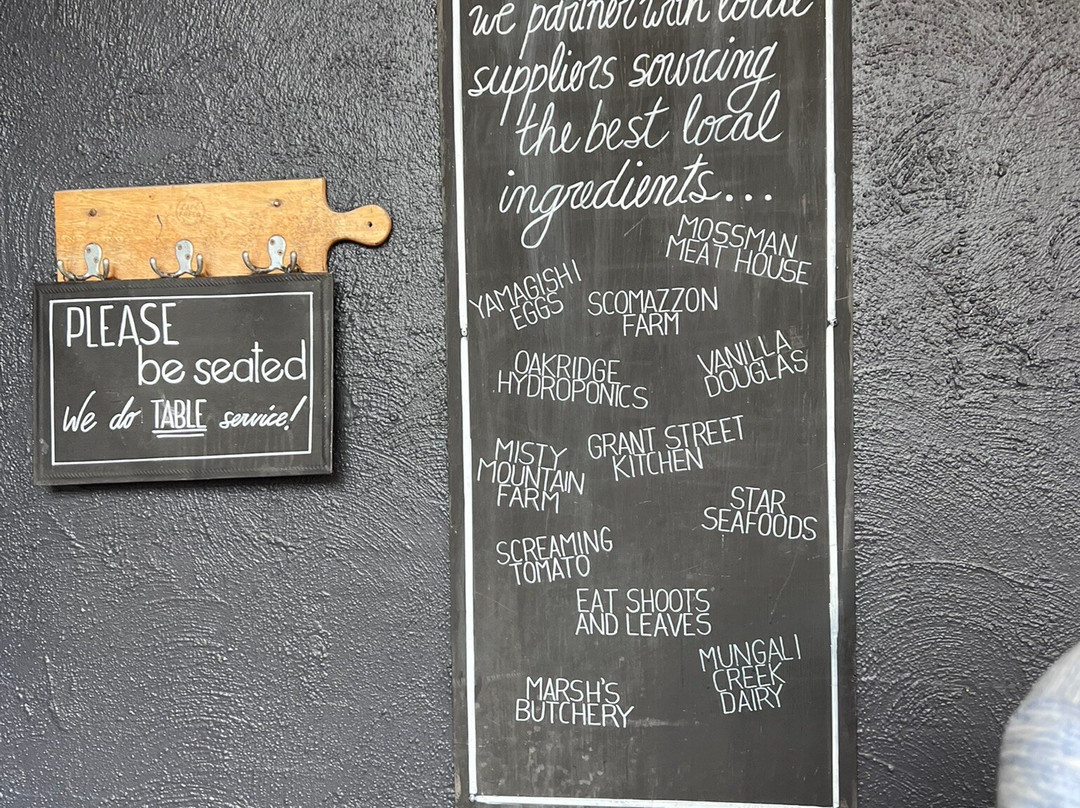 PLEASE
be seated
We do TABLE service!
we partner with local
suppliers sourcing
the best local
ingredients...
MOSSMAN
MEAT HOUSE
YAMAGISHI
EGGS
SCOMAZZON
FARM
OAKRIDGE
HYDROPONICS
VANILLA
DOUGLAS
MISTY
MOUNTAIN
FARM
GRANT STREET
KITCHEN
STAR
SEAFOODS
SCREAMING
TOMATO
EAT SHOOTS
AND LEAVES
MUNGALI
CREEK
DAIRY
MARSH'S
BUTCHERY